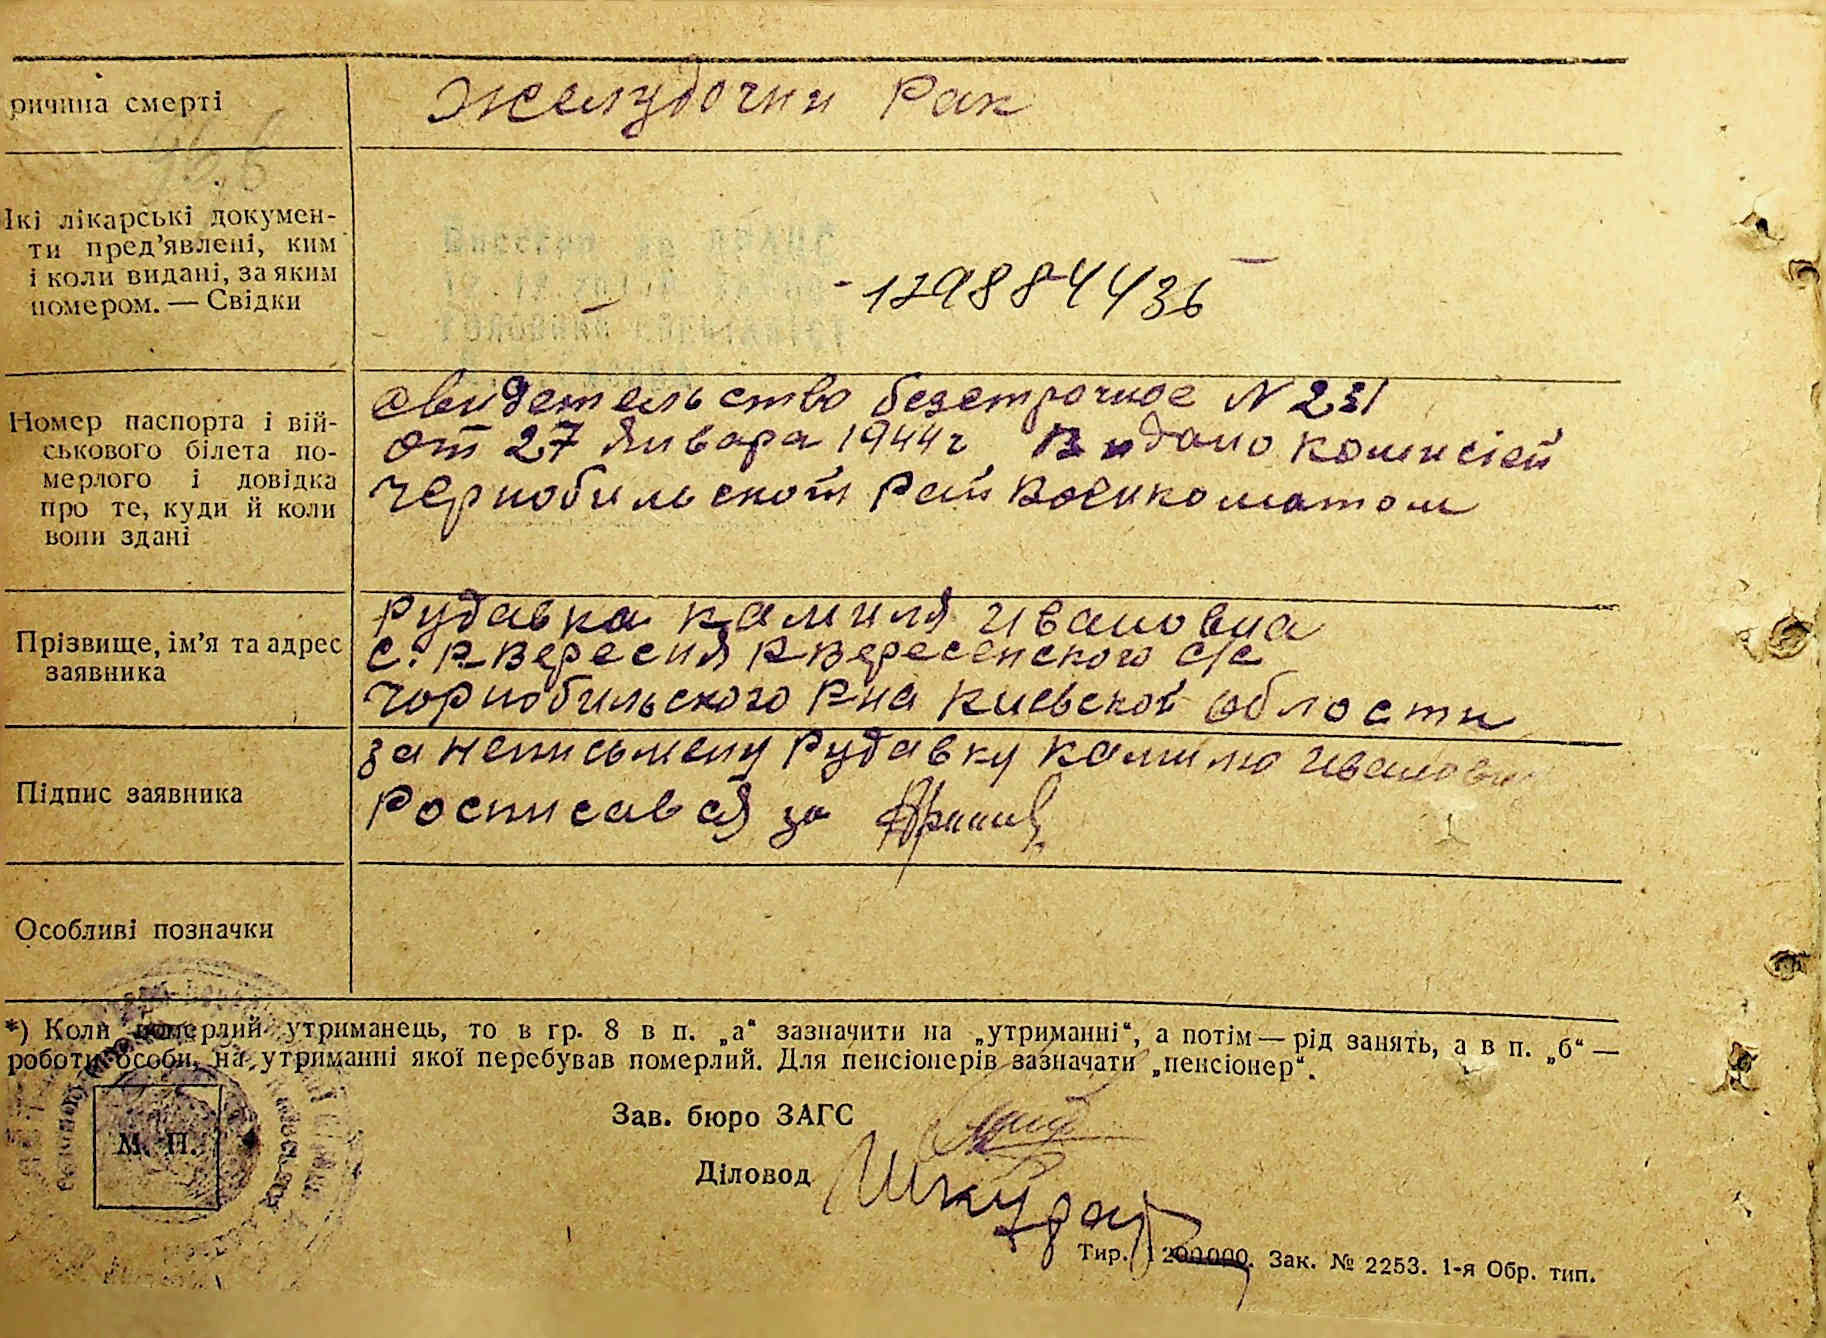 ричина смерті
Желудочни Рак
Ікі лікарські докумен-
ти пред’явлені, ким
і коли видані, за яким
номером. — Свідки
-179884436
Номер паспорта і вій-
ськового білета по-
мерлого і довідка
про те, куди й коли
вони здані
свидетельство безстрочное N 231
от 27 января 1944г Видано комисіей
Чернобильской Рай Военкоматом
Прізвище, ім’я та адрес
заявника
Рудавка Камиля Ивановна
с. Р-Вересня Р-Вересенского с/с
Чорнобильского Р-на Киевской области
Підпис заявника
за неписьмену Рудавку Камилю
Росписався за
Особливі позначки
*) Коли померлий утриманець, то в гр. 8 в п. „а“ зазначити на „утриманні“, а потім — рід занять, а в п. „б“ —
роботи особи, на утриманні якої перебував померлий. Для пенсіонерів зазначати „пенсіонер“.
Зав. бюро ЗАГС
М. П.
Діловод
Тир. 1200000. Зак. № 2253. 1-я Обр. тип.